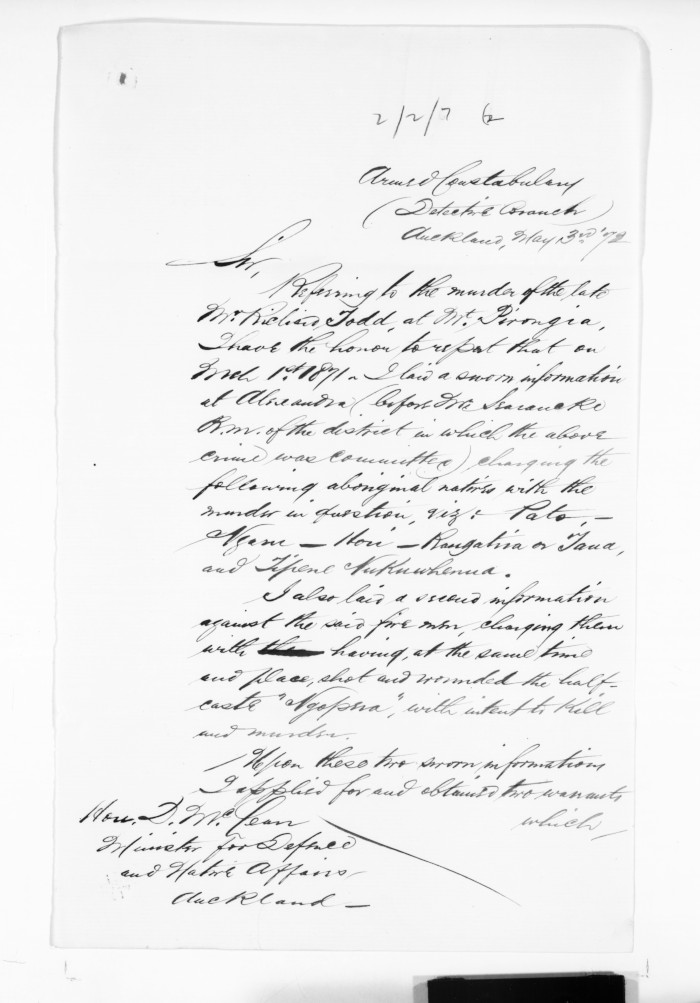 2/2/7
Armed Constabulary
(Detective Branch)
Auckland, May 3rd '72
Sir,
Referring to the murder of the late
Mr Richard Todd, at Mt. Pirongia,
I have the honor to report that on
Mch 1st 1871 I laid a sworn information
at Alexandra (before Mr Searancke
R.M. of the district in which the above
crime was committed) charging the
following aboriginal natives with the
murder in question, viz: Pato, -
- Hori - Rangatira or Taua,
and Tipene Nukuwhenua.
I also laid a second information
against the said five men, charging them
with having, at the same time
and place, shot and wounded the half-
caste "Ngapera", with intent to kill
and murder.
Upon these two sworn informations
I applied for and obtained two warrants
which
Hon. D. McLean
Minister for Defence
and Native Affairs
Auckland -